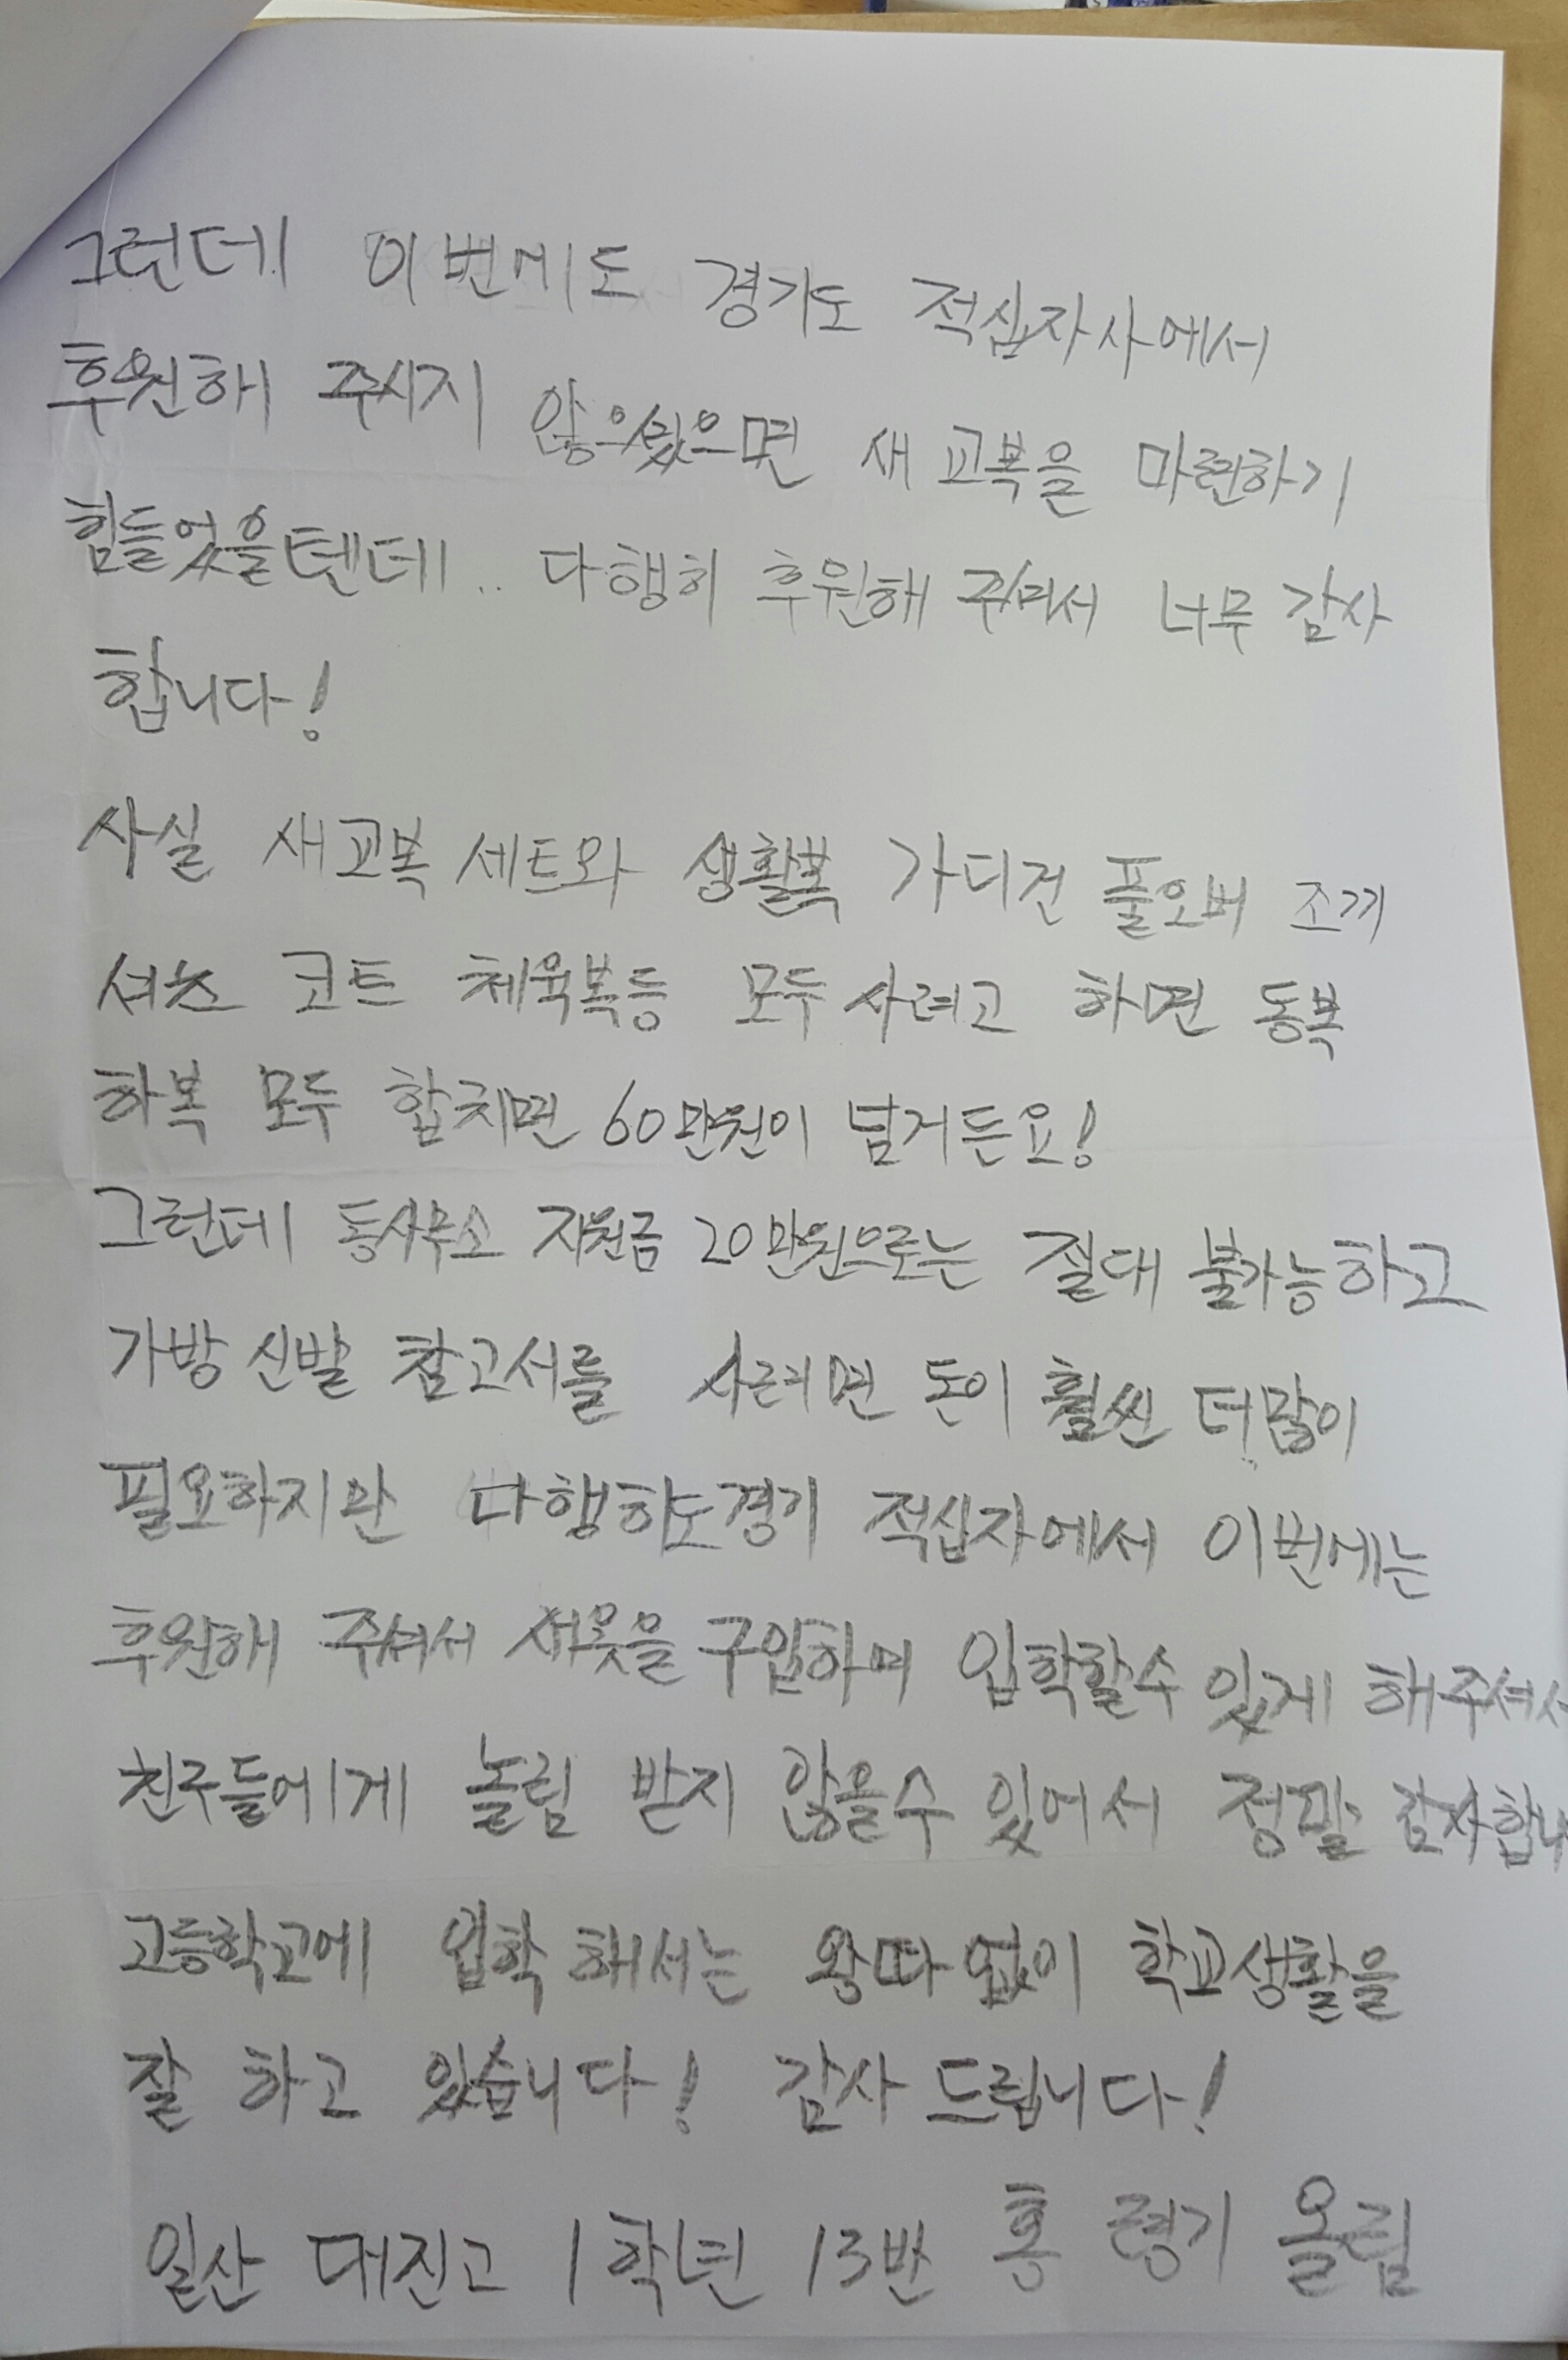 그런데 이번에도 경기도 적십자사에서
후원해 주시지 않으셨으면 새 교복을 마련하기
힘들었을텐데.. 다행히 후원해 주셔서 너무 감사
합니다!
사실 새교복 세트와 생활복 가디건 풀오버 조끼
셔츠 코트 체육복등 모두 사려고 하면 동복
하복 모두 합치면 60만원이 넘거든요!
그런데 동사무소 지원금 20만원으로는 절대 불가능하고
가방 신발 참고서를 사려면 돈이 훨씬 더많이
필요하지만 다행히도 경기 적십자에서 이번에는
후원해 주셔서 새옷을 구입하며 입학할수 있게 해주셔서
친구들에게 놀림 받지 않을수 있어서 정말 감사합니
고등학교에 입학 해서는 왕따 없이 학교생활을
잘 하고 있습니다! 감사 드립니다!
일산 대진고 1학년 13반 홍 령기 올림